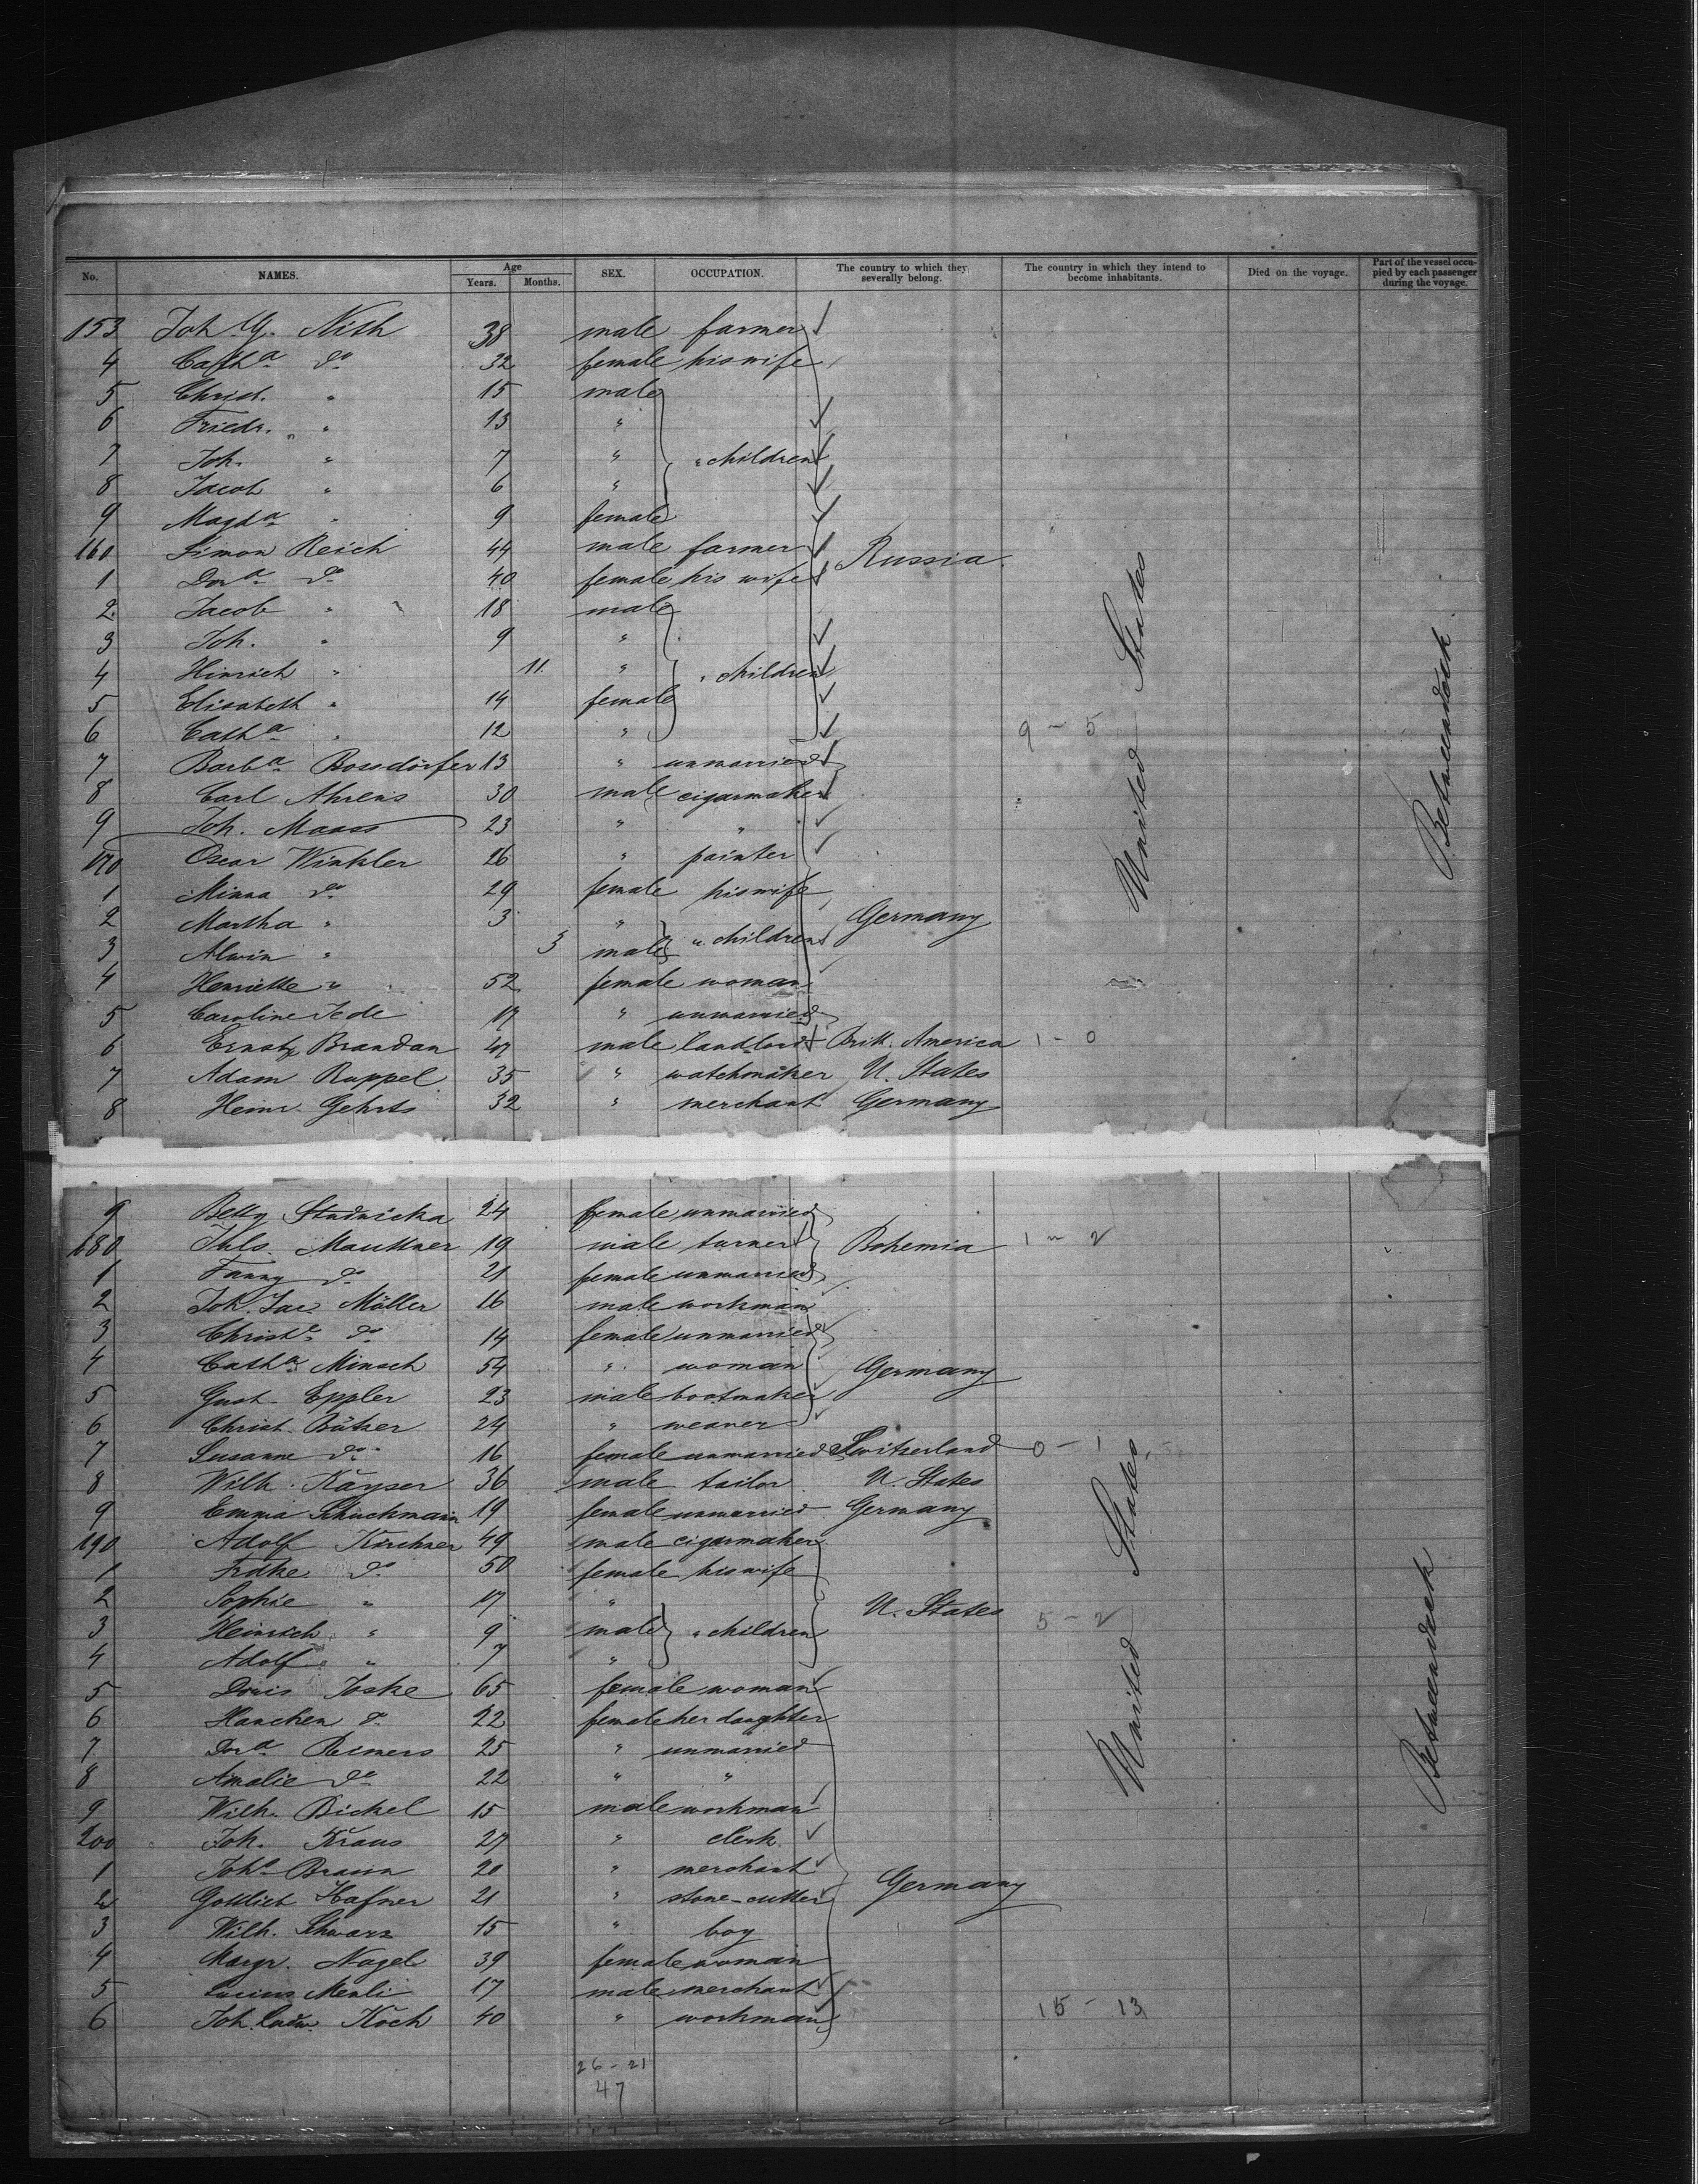 No. NAMES. Age Years. Months. SEX. OCCUPATION. The country to which they severally belong. The country in which they intend to become inhabitants. Died on the voyage. Part of the vessel occupied by each passenger during the voyage.
153 Joh G. Nith 38 male farmer
4 Catha do 32 female his wife
5 Christ. " 15 male
6 Friedr. " 13 "
7 Joh. " 7 " " children
8 Jacob " 6 "
9 Magda " 9 female
160 Simon Reich 44 male farmer Russia
1 Dora do 40 female his wife
2 Jacob " 18 male
3 Joh. " 9 "
4 Hinrich " 11 " " children
5 Elisabeth " 14 female
6 Catha " 12 " 9 - 5
7 Barba Bossdörfer 13 " unmarried
8 Carl Ahrens 30 male cigarmaker
9 Joh. Maass 23 " "
170 Oscar Winkler 26 " painter
1 Minna do 29 female his wife
2 Martha " 3 " Germany
3 Alwin " 3 male " children
4 Henriette " 52 female woman
5 Caroline Jede 17 " unmarried
6 Ernst Brandan 47 male landlord Britt. America 1 - 0
7 Adam Ruppel 35 " watchmaker U. States
8 Heinr Gehrts 32 " merchant Germany
United States
Betweendeck
9 Betty Studnicka 24 female unmarried
180 Juls. Mauttner 19 male turner Bohemia 1 - 2
1 Fanny do 21 female unmarried
2 Joh. Jac. Möller 16 male workman
3 Christe do 14 female unmarried
4 Catha Minsch 54 " woman Germany
5 Gust. Eppler 23 male bootmaker
6 Christ. Bützer 24 " weaver
7 Susanne do 16 female unmarried Switzerland 0 - 1
8 Wilh. Kayser 36 male tailor U. States
9 Emma Schuchmann 19 female unmarried Germany
190 Adolf Kirchner 49 male cigarmaker
1 Frdke do 50 female his wife
2 Sophie " 17 " U. States
3 Heinrich " 9 male " children 5 - 2
4 Adolf " 7 "
5 Doris Joske 65 female woman
6 Hanchen do 22 female her daughter
7 Dora Reimers 25 " unmarried
8 Amalie do 22 " "
9 Wilh. Bickel 15 male workman
200 Joh. Kraus 27 " clerk
1 Joh. Braun 20 " merchant
2 Gottlieb Hafner 21 " stone-cutter Germany
3 Wilh. Schwarz 15 " boy
4 Margr. Nagel 39 female woman
5 Lucius Menli 17 male merchant
6 Joh. Ludw. Koch 40 " workman 15 - 13
United States
Betweendeck
26 - 21
47